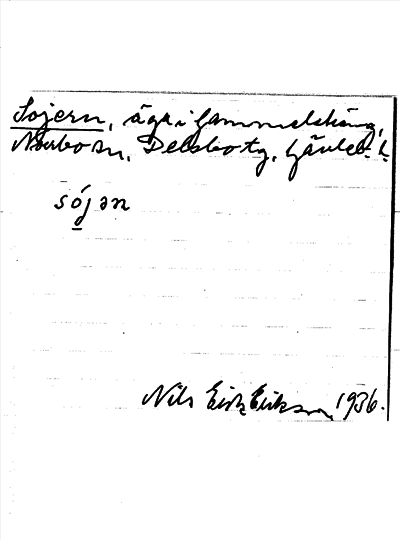 Sojern, äga i Gammelsträng,
Norrbo sn, Delsbo tg, Gävleb. l.
sójən
Nils Erik Eriksson, 1936.